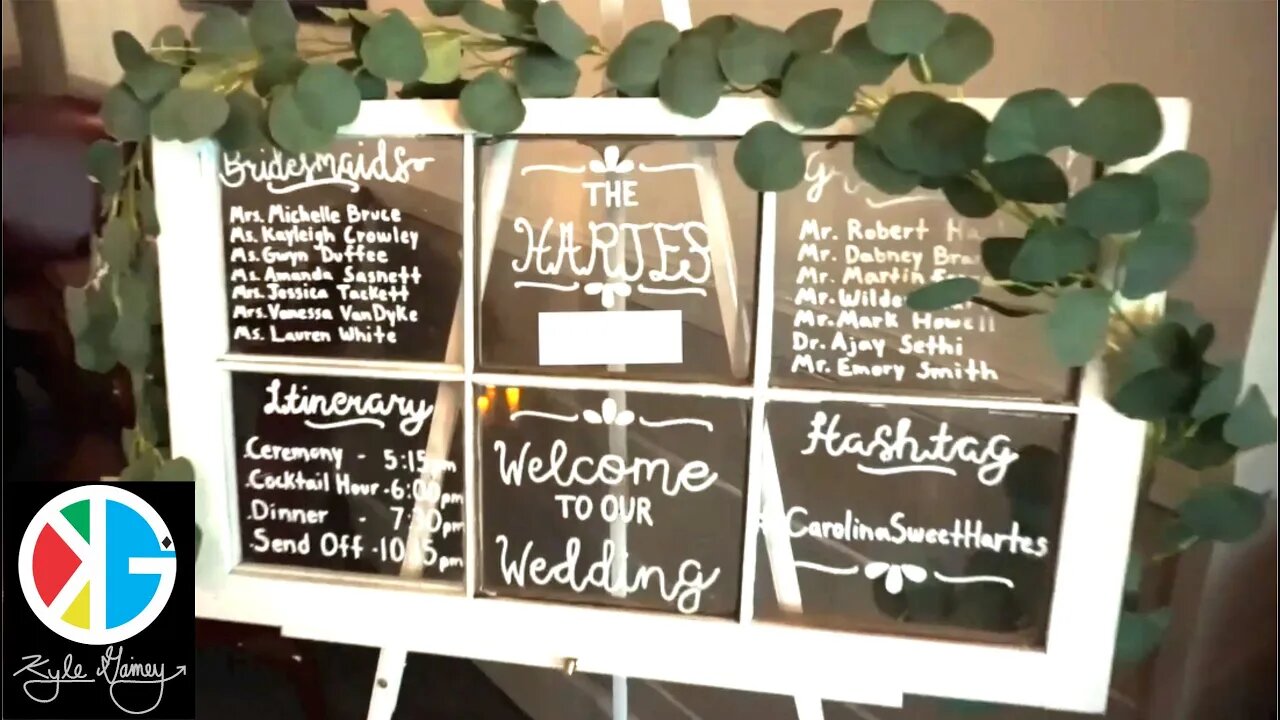 Bridesmaids
Mrs. Michelle Bruce
Ms. Kayleigh Crowley
Ms. Gwyn Duffee
Ms. Amanda Sasnett
Mrs. Jessica Tackett
Mrs. Vanessa VanDyke
Ms. Lauren White
THE
HARTES
Mr. Robert
Mr. Dabney
Mr. Martin
Mr. Wilder
Mr. Mark Howell
Dr. Ajay Sethi
Mr. Emory Smith
Itinerary
Ceremony - 5:15pm
Cocktail Hour - 6:00pm
Dinner - 7:30pm
Send Off - 10:15pm
Welcome
TO OUR
Wedding
Hashtag
#CarolinaSweetHartes
KG
Kyle Gamey